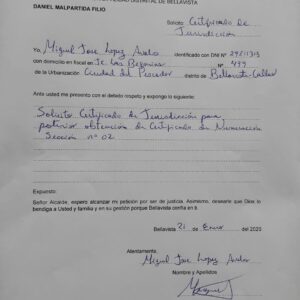 DISTRITAL DE BELLAVISTA
DANIEL MALPARTIDA FILIO
Solicito: Certificado de
Jurisdicción
Yo, Miguel Jose Lopez Avalos identificado con DNI Nº
con domicilio en fiscal en Jr. Las Begonias Nº 439
de la Urbanización Ciudad del Pescador distrito de Bellavista - Callao
Ante usted me presento con el debido respeto y expongo lo siguiente:
Solicito Certificado de Jurisdicción para
posterior obtención de Certificado de Numeración
Sección nº 02
Expuesto:
Señor Alcalde, espero alcanzar mi petición por ser de justicia. Asimismo, desearle que Dios lo
bendiga a Usted y familia y en su gestión porque Bellavista confía en ti.
Bellavista 21 de Enero del 2020
Atentamente,
Miguel Jose Lopez Avalos
Nombre y Apellidos